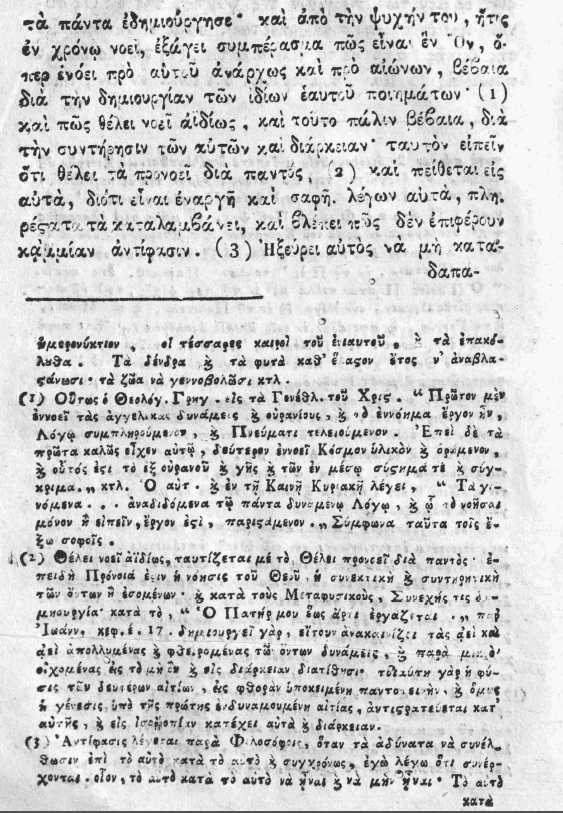 τὰ πάντα ἐδημιούργησε· καὶ ἀπὸ τὴν ψυχήν του, ἥτις
ἐν χρόνῳ νοεῖ, ἐξάγει συμπέρασμα πῶς εἶναι ἓν Ὂν, ὅ-
περ ἐνόει πρὸ αὐτοῦ ἀνάρχως καὶ πρὸ αἰώνων, βέβαια
διὰ τὴν δημιουργίαν τῶν ἰδίων ἑαυτοῦ ποιημάτων· (1)
καὶ πῶς θέλει νοεῖ ἀϊδίως, καὶ τοῦτο πάλιν βέβαια, διὰ
τὴν συντήρησιν τῶν αὐτῶν καὶ διάρκειαν· ταυτὸν εἰπεῖν
ὅτι θέλει τὰ προνοεῖ δια παντός, (2) καὶ πείθεται εἰς
αὐτὰ, διότι εἶναι ἐναργῆ καὶ σαφῆ. λέγων αὐτὰ, πλη-
ρέϛατα τὰ καταλαμβάνει, καὶ βλέπει πῶς δὲν ἐπιφέρουν
κᾀμμίαν ἀντίφασιν. (3) Ἠξεύρει αὐτὸς νὰ μὴ κατα-
δαπα-
ἡμερονύκτιον, οἱ τέσσαρες καιροὶ τοῦ ἐνιαυτοῦ, ϗ τὰ ἐπακό-
λουθα. Τὰ δένδρα ϗ τὰ φυτὰ καθ' ἕκαϛον ἔτος ν' ἀναβλα-
ϛάνωσι· τὰ ζῶα νὰ γεννοβολῶσι κτλ.
(1) Οὕτως ὁ Θεολόγ. Γρηγ. εἰς τὰ Γενέθλ. τοῦ Χριϛ. “ Πρῶτον μὲν
ἐννοεῖ τὰς ἀγγελικὰς δυνάμεις ϗ οὐρανίους, ϗ τὸ ἐννόημα ἔργον ἦν,
Λόγῳ συμπληρούμενον, ϗ Πνεύματι τελειούμενον. Ἐπεὶ δὲ τὰ
πρῶτα καλῶς εἶχεν αὐτῷ, δεύτερον ἐννοεῖ Κόσμον ὑλικὸν ϗ ὁρώμενον,
ϗ οὗτός ἐϛι τὸ ἐξ οὐρανοῦ ϗ γῆς ϗ τῶν ἐν μέσῳ σύϛημά τε ϗ σύγ-
κριμα.„ κτλ. Ὁ αὐτ. ϗ ἐν τῇ Καινῇ Κυριακῇ λέγει, “ Τὰ γι-
νόμενα... ἀναδιδόμενα τῷ πάντα δυναμένῳ Λόγῳ, ϗ ᾧ τὸ νοῆσαι
μόνον ἢ εἰπεῖν, ἔργον ἐϛὶ, παριϛάμενον.„ Σύμφωνα ταῦτα τοῖς ἔ-
ξω σοφοῖς.
(2) Θέλει νοεῖ ἀϊδίως, ταυτίζεται μὲ τὸ Θέλει προνοεῖ διὰ παντός· ἐ-
πειδὴ Πρόνοιά ἐϛιν ἡ νόησις τοῦ Θεοῦ, ἡ συνεκτικὴ ϗ συντηρητικὴ
τῶν ὄντων ἢ ἐσομένων· ϗ κατὰ τοὺς Μεταφυσικοὺς, Συνεχής τις δη-
μιουργία· κατὰ τὸ, “ Ὁ Πατήρ μου ἕως ἄρτι ἐργάζεται.„ παρ'
Ἰωάνν. κεφ. έ. 17. δημιουργεῖ γὰρ, εἴτουν ἀνακαινίζει τὰς ἀεὶ καὶ
ἀεὶ ἀπολλυμένας ϗ φθειρομένας τῶν ὄντων δυνάμεις, ϗ παρὰ μικρὸν
οἰχομένας εἰς τὸ μὴ ὂν ϗ εἰς διάρκειαν διατίθησι· τοιαύτη γὰρ ἡ φύ-
σις τῶν δευτέρων αἰτίων, εἰς φθορὰν ὑποκειμένη παντοτεινὴν, ϗ ὅμως
ἡ γένεσις ὑπὸ τῆς πρώτης ἐνδυναμουμένη αἰτίας, ἀντιϛρατεύεται κατ'
αὐτῆς, ϗ εἰς ἰσοῤῥοπίαν κατέχει αὐτὰ ϗ διάρκειαν.
(3) Ἀντίφασις λέγεται παρὰ Φιλοσόφοις, ὅταν τὰ ἀδύνατα νὰ συνέλ-
θωσιν ἐπὶ τὸ αὐτὸ κατὰ τὸ αὐτὸ ϗ συγχρόνως, ἐγὼ λέγω ὅτι συνέρ-
χονται. οἷον, τὸ αὐτὸ κατὰ τὸ αὐτὸ νὰ ἦναι ϗ νὰ μὴν ἦναι· Τὸ αὐτὸ
κατὰ